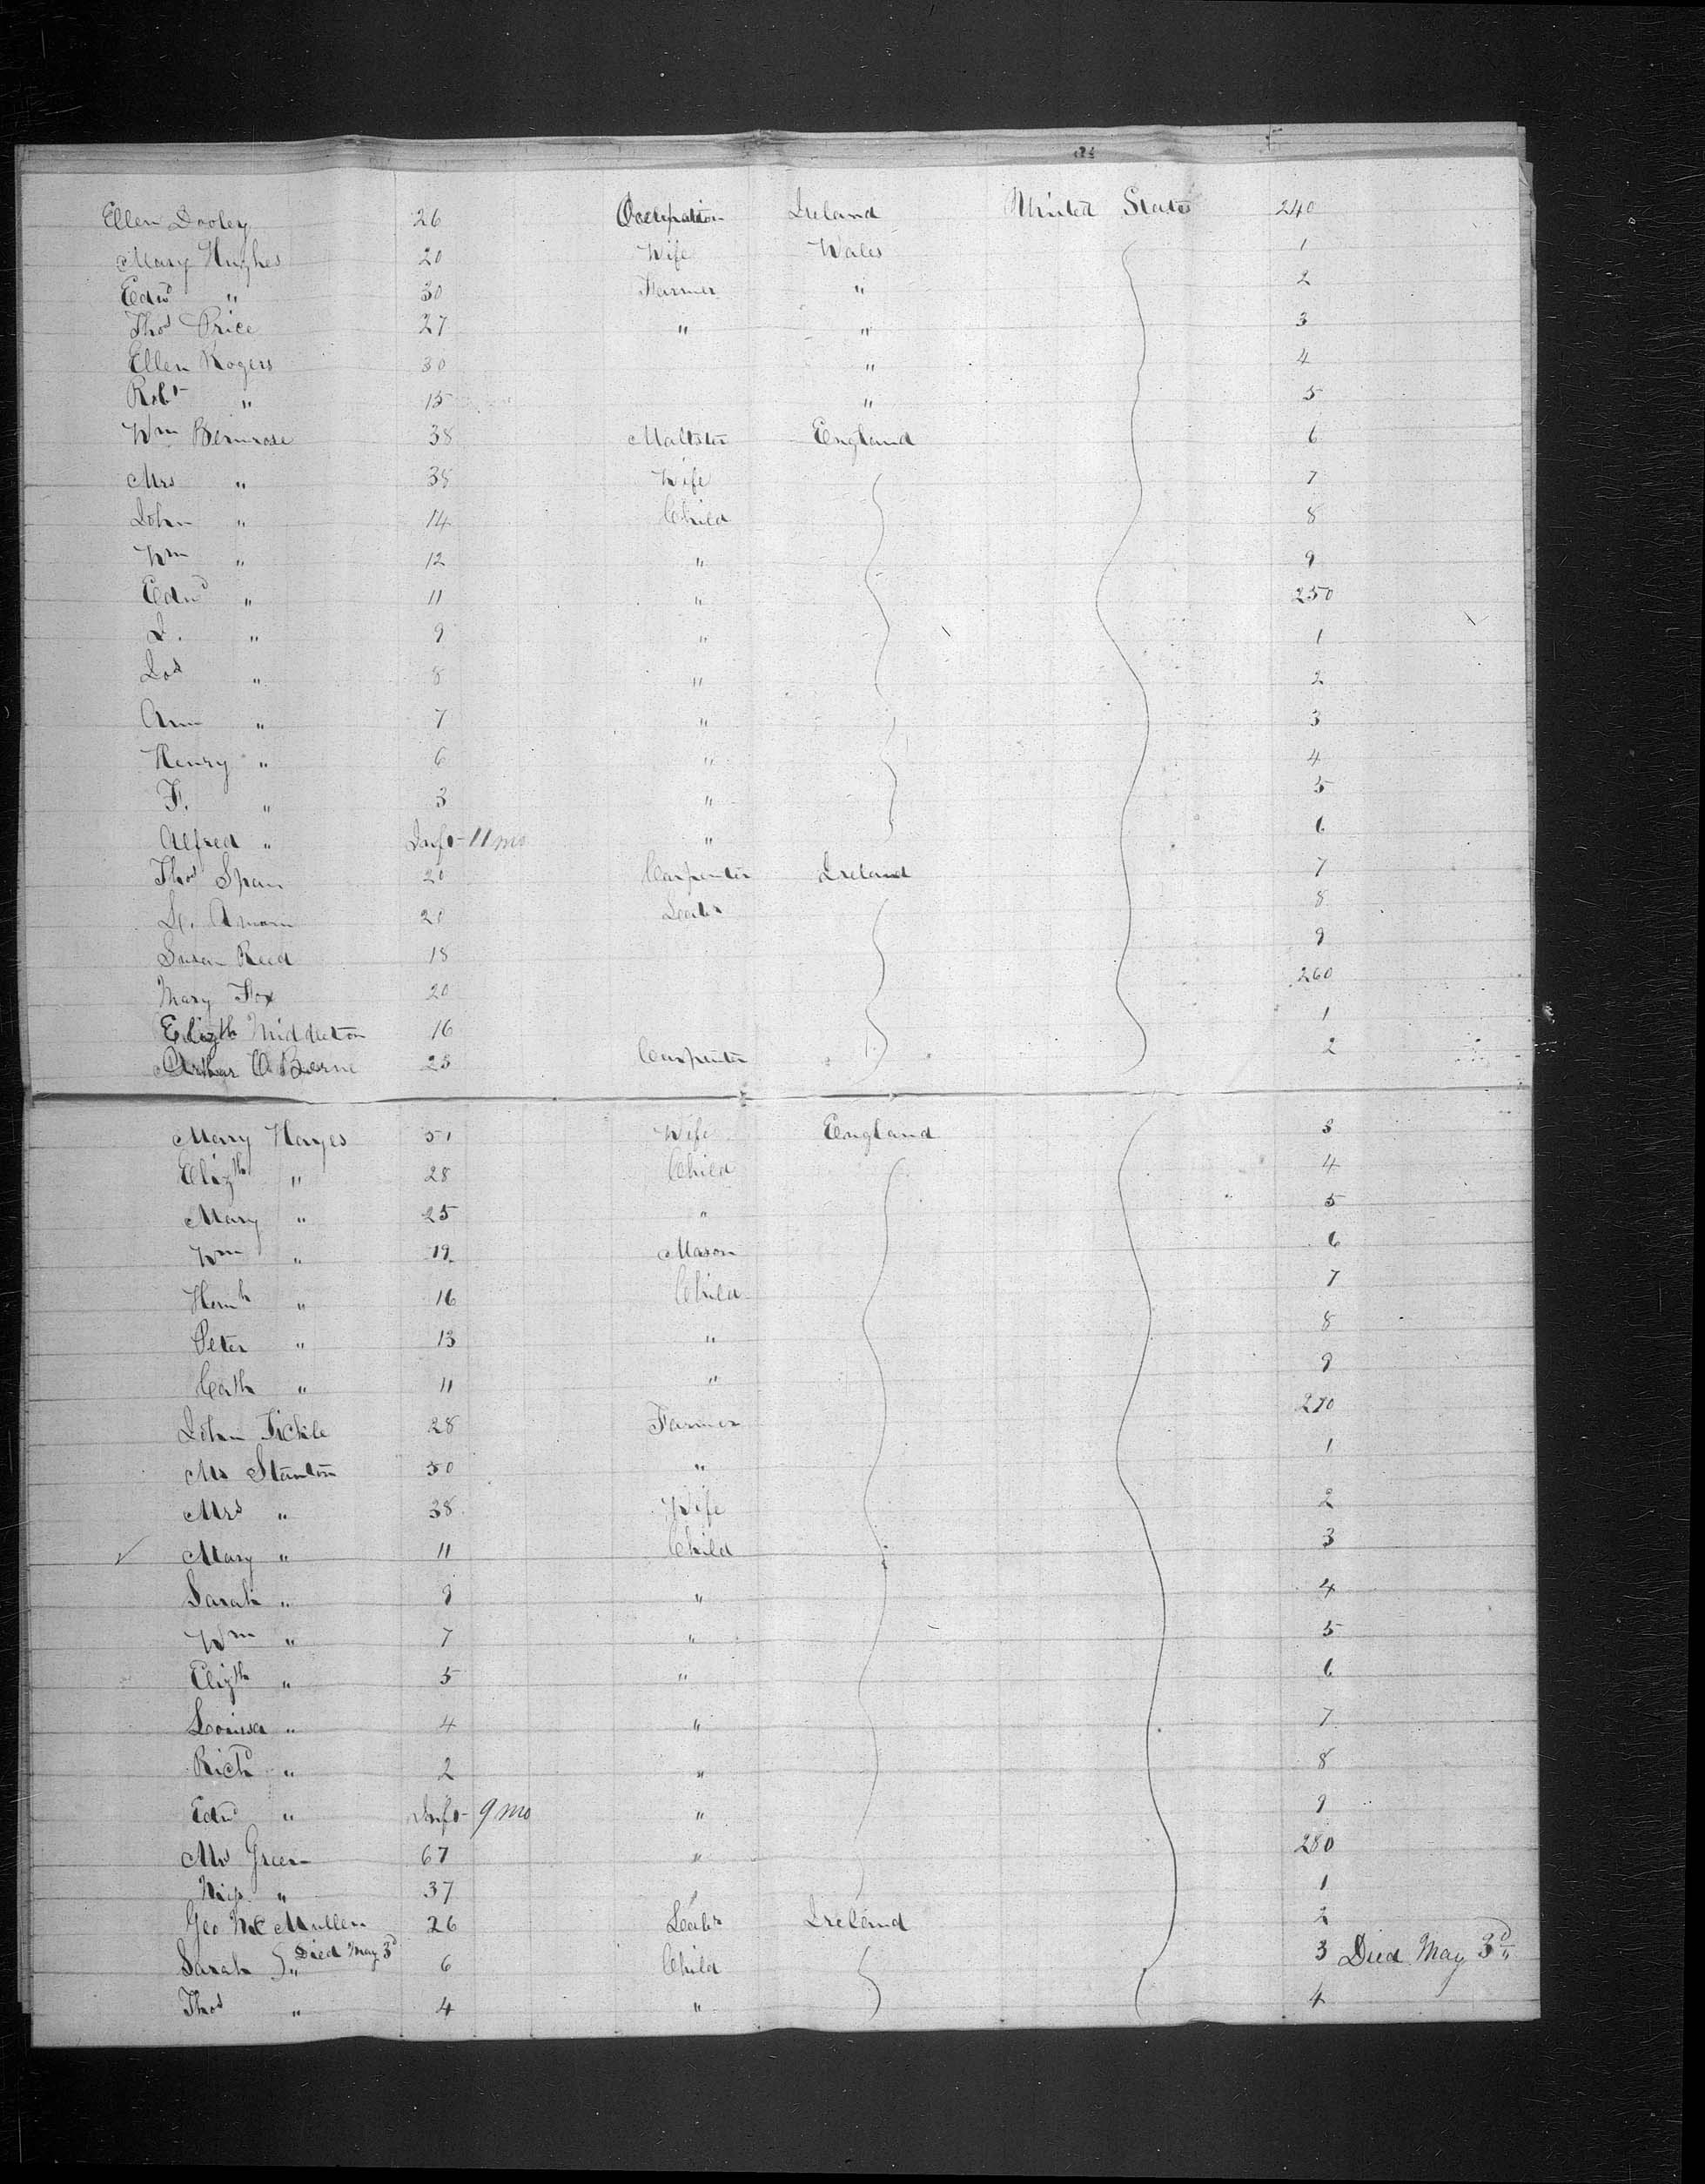 Ellen Dooley 26 Occupation Ireland United States 240
Mary Hughes 20 Wife Wales 1
Edwd " 30 Farmer " 2
Thos Price 27 " " 3
Ellen Rogers 30 " 4
Robt " 15 " 5
Wm Bemrose 38 Maltster England 6
Mrs " 38 Wife 7
John " 14 Child 8
Wm " 12 " 9
Edwd " 11 " 250
J. " 9 " 1
Jos " 8 " 2
Ann " 7 " 3
Henry " 6 " 4
F. " 3 " 5
Alfred " Inft - 11 mo " 6
Thos Span 20 Carpenter Ireland 7
20 8
Susan Reed 18 9
Mary Fox 20 260
Elizth Middleton 16 1
Arthur O Berne 25 Carpenter 2
Mary Hayes 51 Wife England 3
Elizth " 28 Child 4
Mary " 25 " 5
Wm " 19 Mason 6
Hanh " 16 Child 7
Peter " 13 " 8
Cath " 11 " 9
John Tickle 28 Farmer 270
Mr Stanton 50 " 1
Mrs " 38 Wife 2
Mary " 11 Child 3
Sarah " 9 " 4
Wm " 7 " 5
Elizth " 5 " 6
Louisa " 4 " 7
Richd " 2 " 8
Edwd " Inft - 9 mo " 9
Mrs Green 67 " 280
" 37 " 1
Geo Mc Mullen 26 Ireland 2
Sarah " Died May 3d 6 Child 3 Died May 3d
Thos " 4 " 4